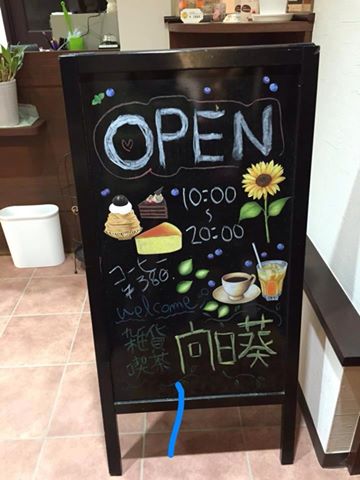 OPEN
10:00
~
20:00
コーヒー
¥380.
welcome
雑貨
喫茶
向日葵